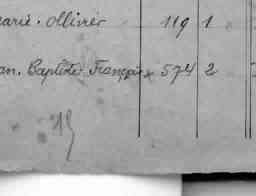 arié. Ollivier 119 1
an. Baptiste François 574 2